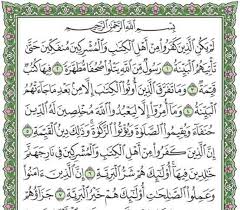 بِسْمِ ٱللَّهِ ٱلرَّحْمَٰنِ ٱلرَّحِيمِ
لَمْ يَكُنِ ٱلَّذِينَ كَفَرُوا۟ مِنْ أَهْلِ ٱلْكِتَٰبِ وَٱلْمُشْرِكِينَ مُنفَكِّينَ حَتَّىٰ
تَأْتِيَهُمُ ٱلْبَيِّنَةُ ١ رَسُولٌ مِّنَ ٱللَّهِ يَتْلُوا۟ صُحُفًا مُّطَهَّرَةً ٢ فِيهَا كُتُبٌ
قَيِّمَةٌ ٣ وَمَا تَفَرَّقَ ٱلَّذِينَ أُوتُوا۟ ٱلْكِتَٰبَ إِلَّا مِنۢ بَعْدِ مَا جَآءَتْهُمُ
ٱلْبَيِّنَةُ ٤ وَمَآ أُمِرُوٓا۟ إِلَّا لِيَعْبُدُوا۟ ٱللَّهَ مُخْلِصِينَ لَهُ ٱلدِّينَ
حُنَفَآءَ وَيُقِيمُوا۟ ٱلصَّلَوٰةَ وَيُؤْتُوا۟ ٱلزَّكَوٰةَ وَذَٰلِكَ دِينُ ٱلْقَيِّمَةِ ٥
إِنَّ ٱلَّذِينَ كَفَرُوا۟ مِنْ أَهْلِ ٱلْكِتَٰبِ وَٱلْمُشْرِكِينَ فِى نَارِ جَهَنَّمَ
خَٰلِدِينَ فِيهَآ أُو۟لَٰٓئِكَ هُمْ شَرُّ ٱلْبَرِيَّةِ ٦ إِنَّ ٱلَّذِينَ ءَامَنُوا۟
وَعَمِلُوا۟ ٱلصَّٰلِحَٰتِ أُو۟لَٰٓئِكَ هُمْ خَيْرُ ٱلْبَرِيَّةِ ٧ جَزَآؤُهُمْ